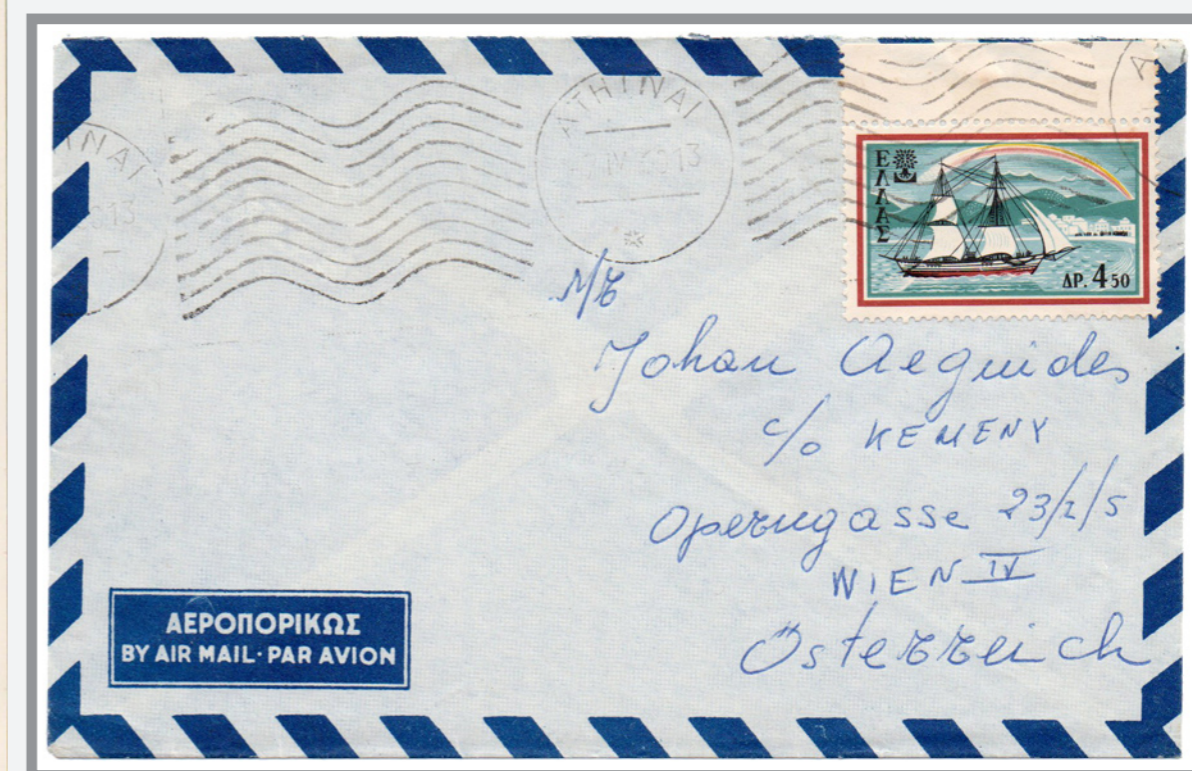 ATHINAI
ΕΛΛΑΣ
ΔΡ. 4 50
Johan Aeguides
c/o KEMENY
Operngasse 23/1/5
WIEN IV
Österreich
ΑΕΡΟΠΟΡΙΚΩΣ
BY AIR MAIL · PAR AVION